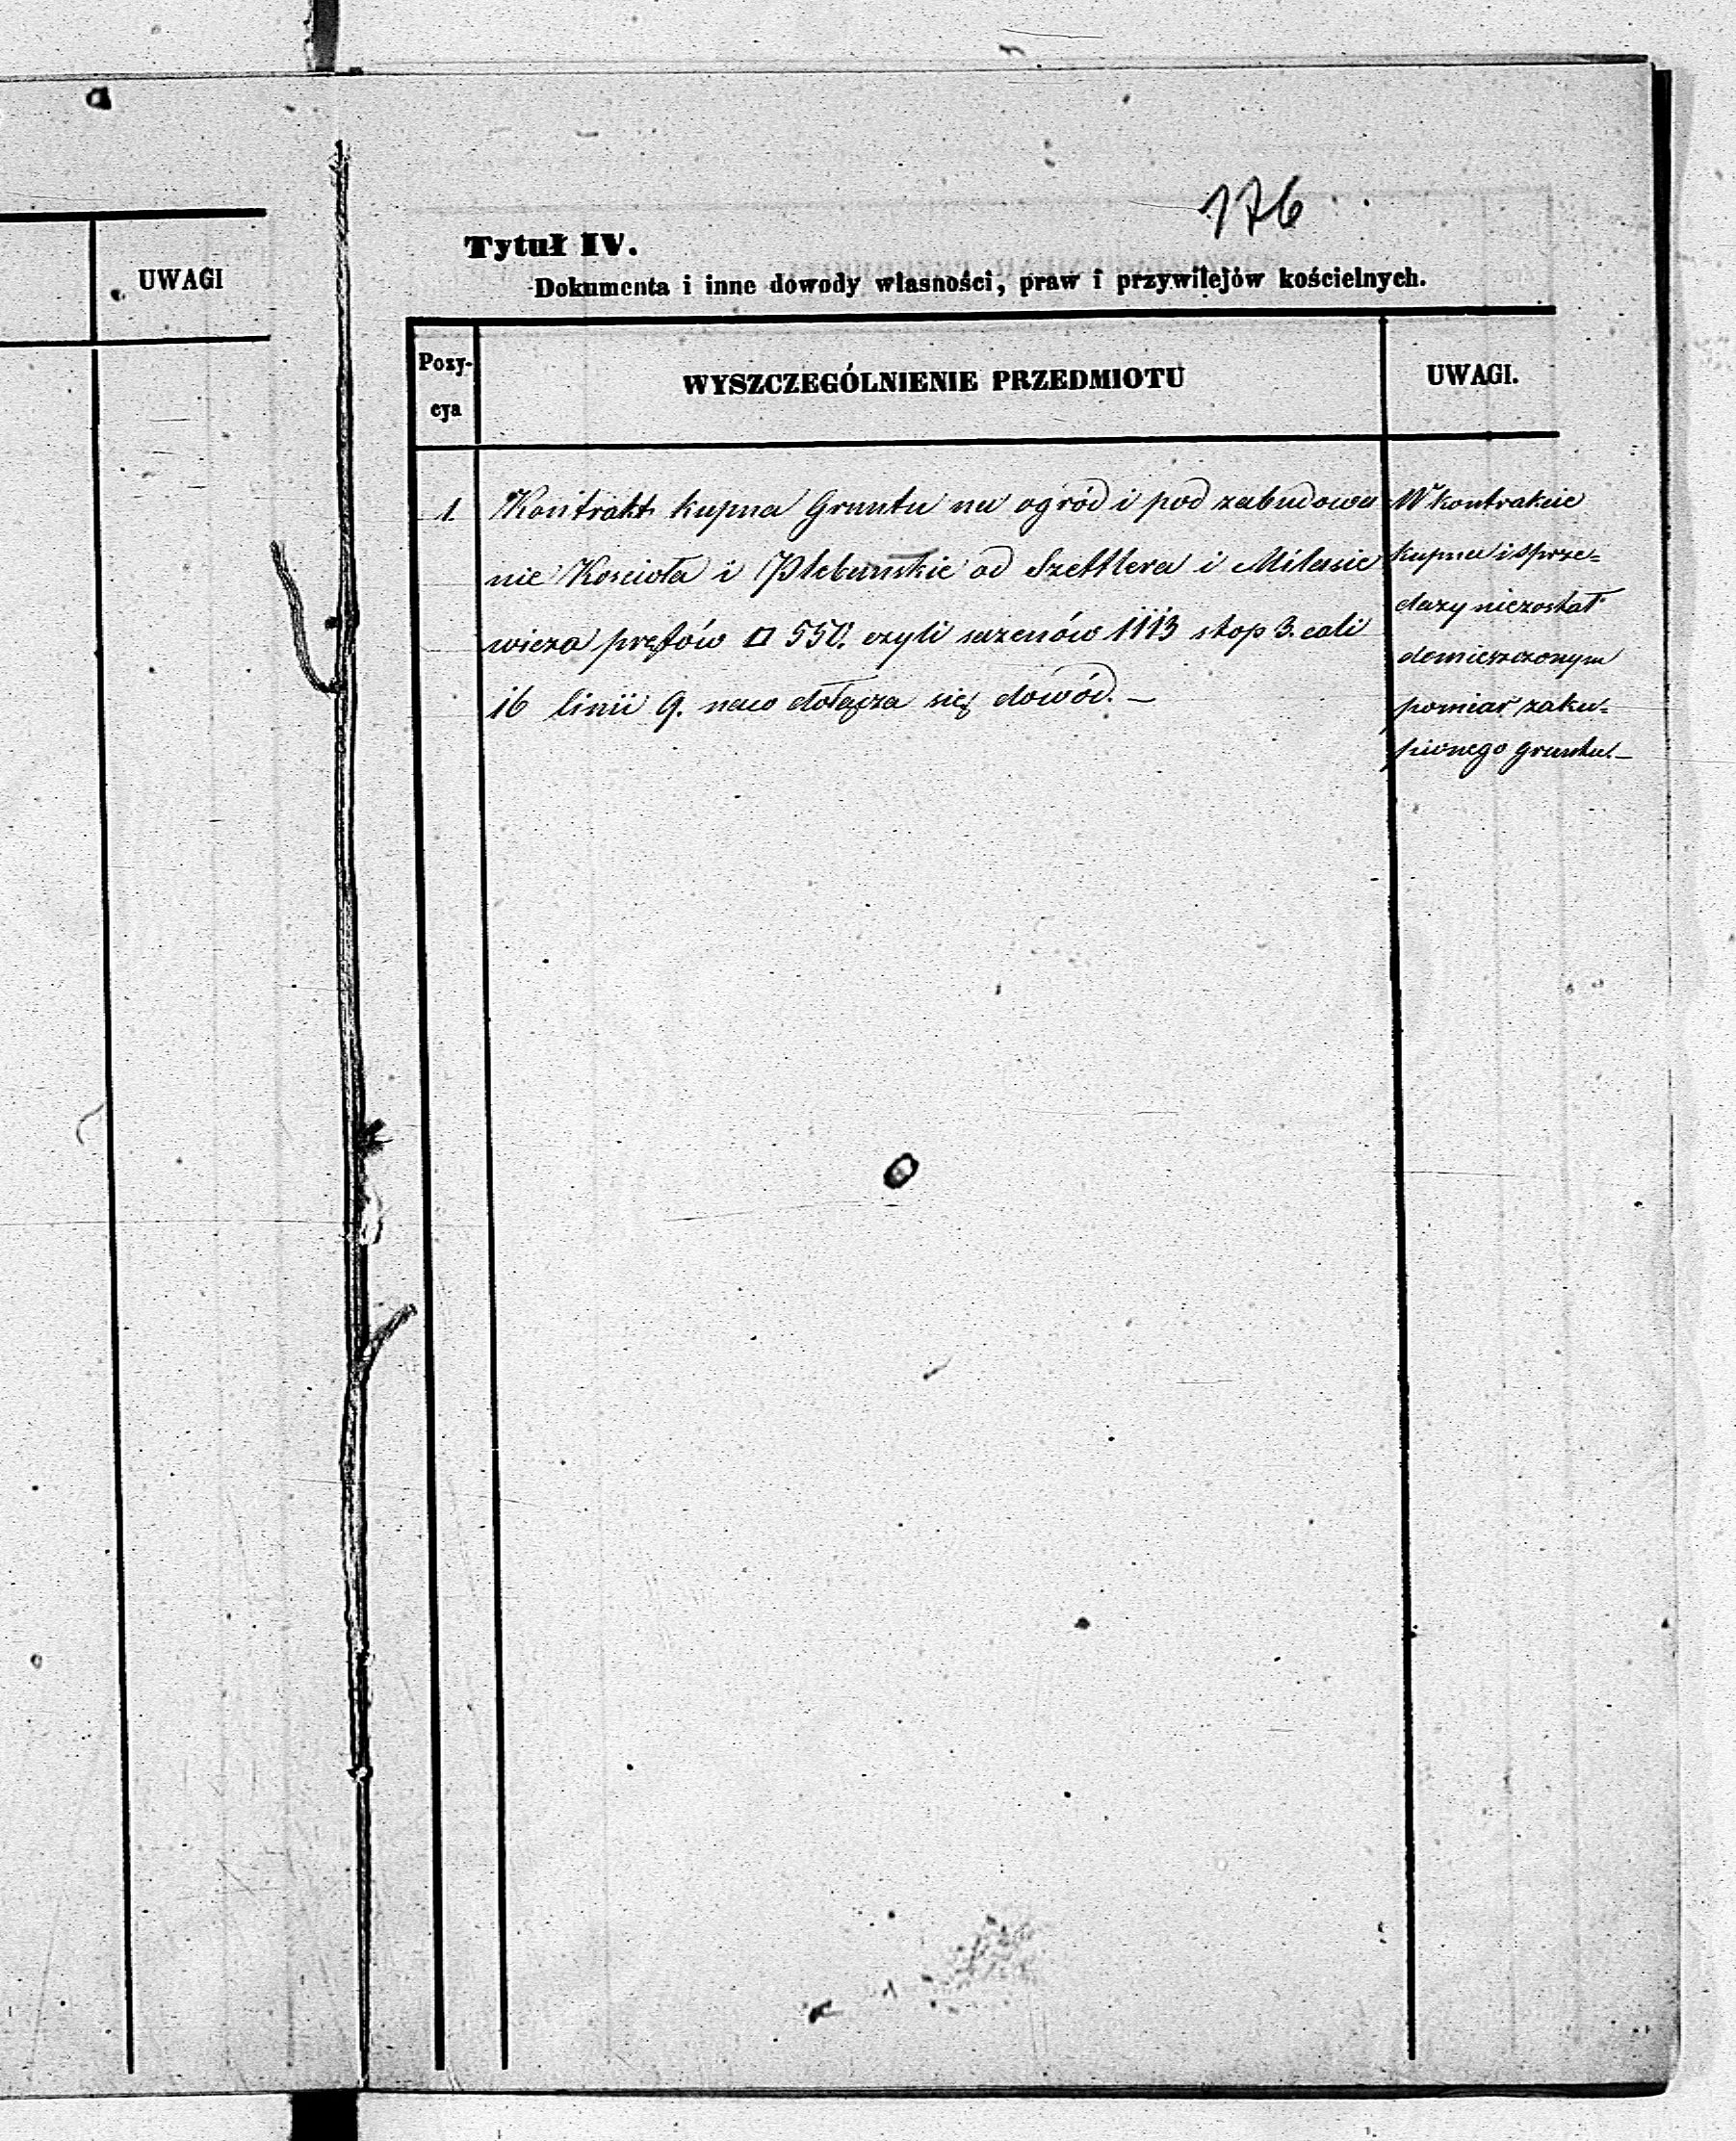 UWAGI
176
Tytuł IV.
Dokumenta i inne dowody własności, praw i przywilejów kościelnych.
Pozy-
cya
WYSZCZEGÓLNIENIE PRZEDMIOTU
UWAGI.
1. Kontrakt kupna Gruntu na ogród i pod zabudowa
nie Kościoła i Plebanskie od Szettlera i Milasie
wicza prętów □ 550. czyli sazenów 1113 stop 3. cali
16 linii 9. naco dołącza się dowód. —
W kontrakcie
kupna i sprze-
dazy niezostał
domieszczonym
pomiar zaku-
pionego gruntu. —